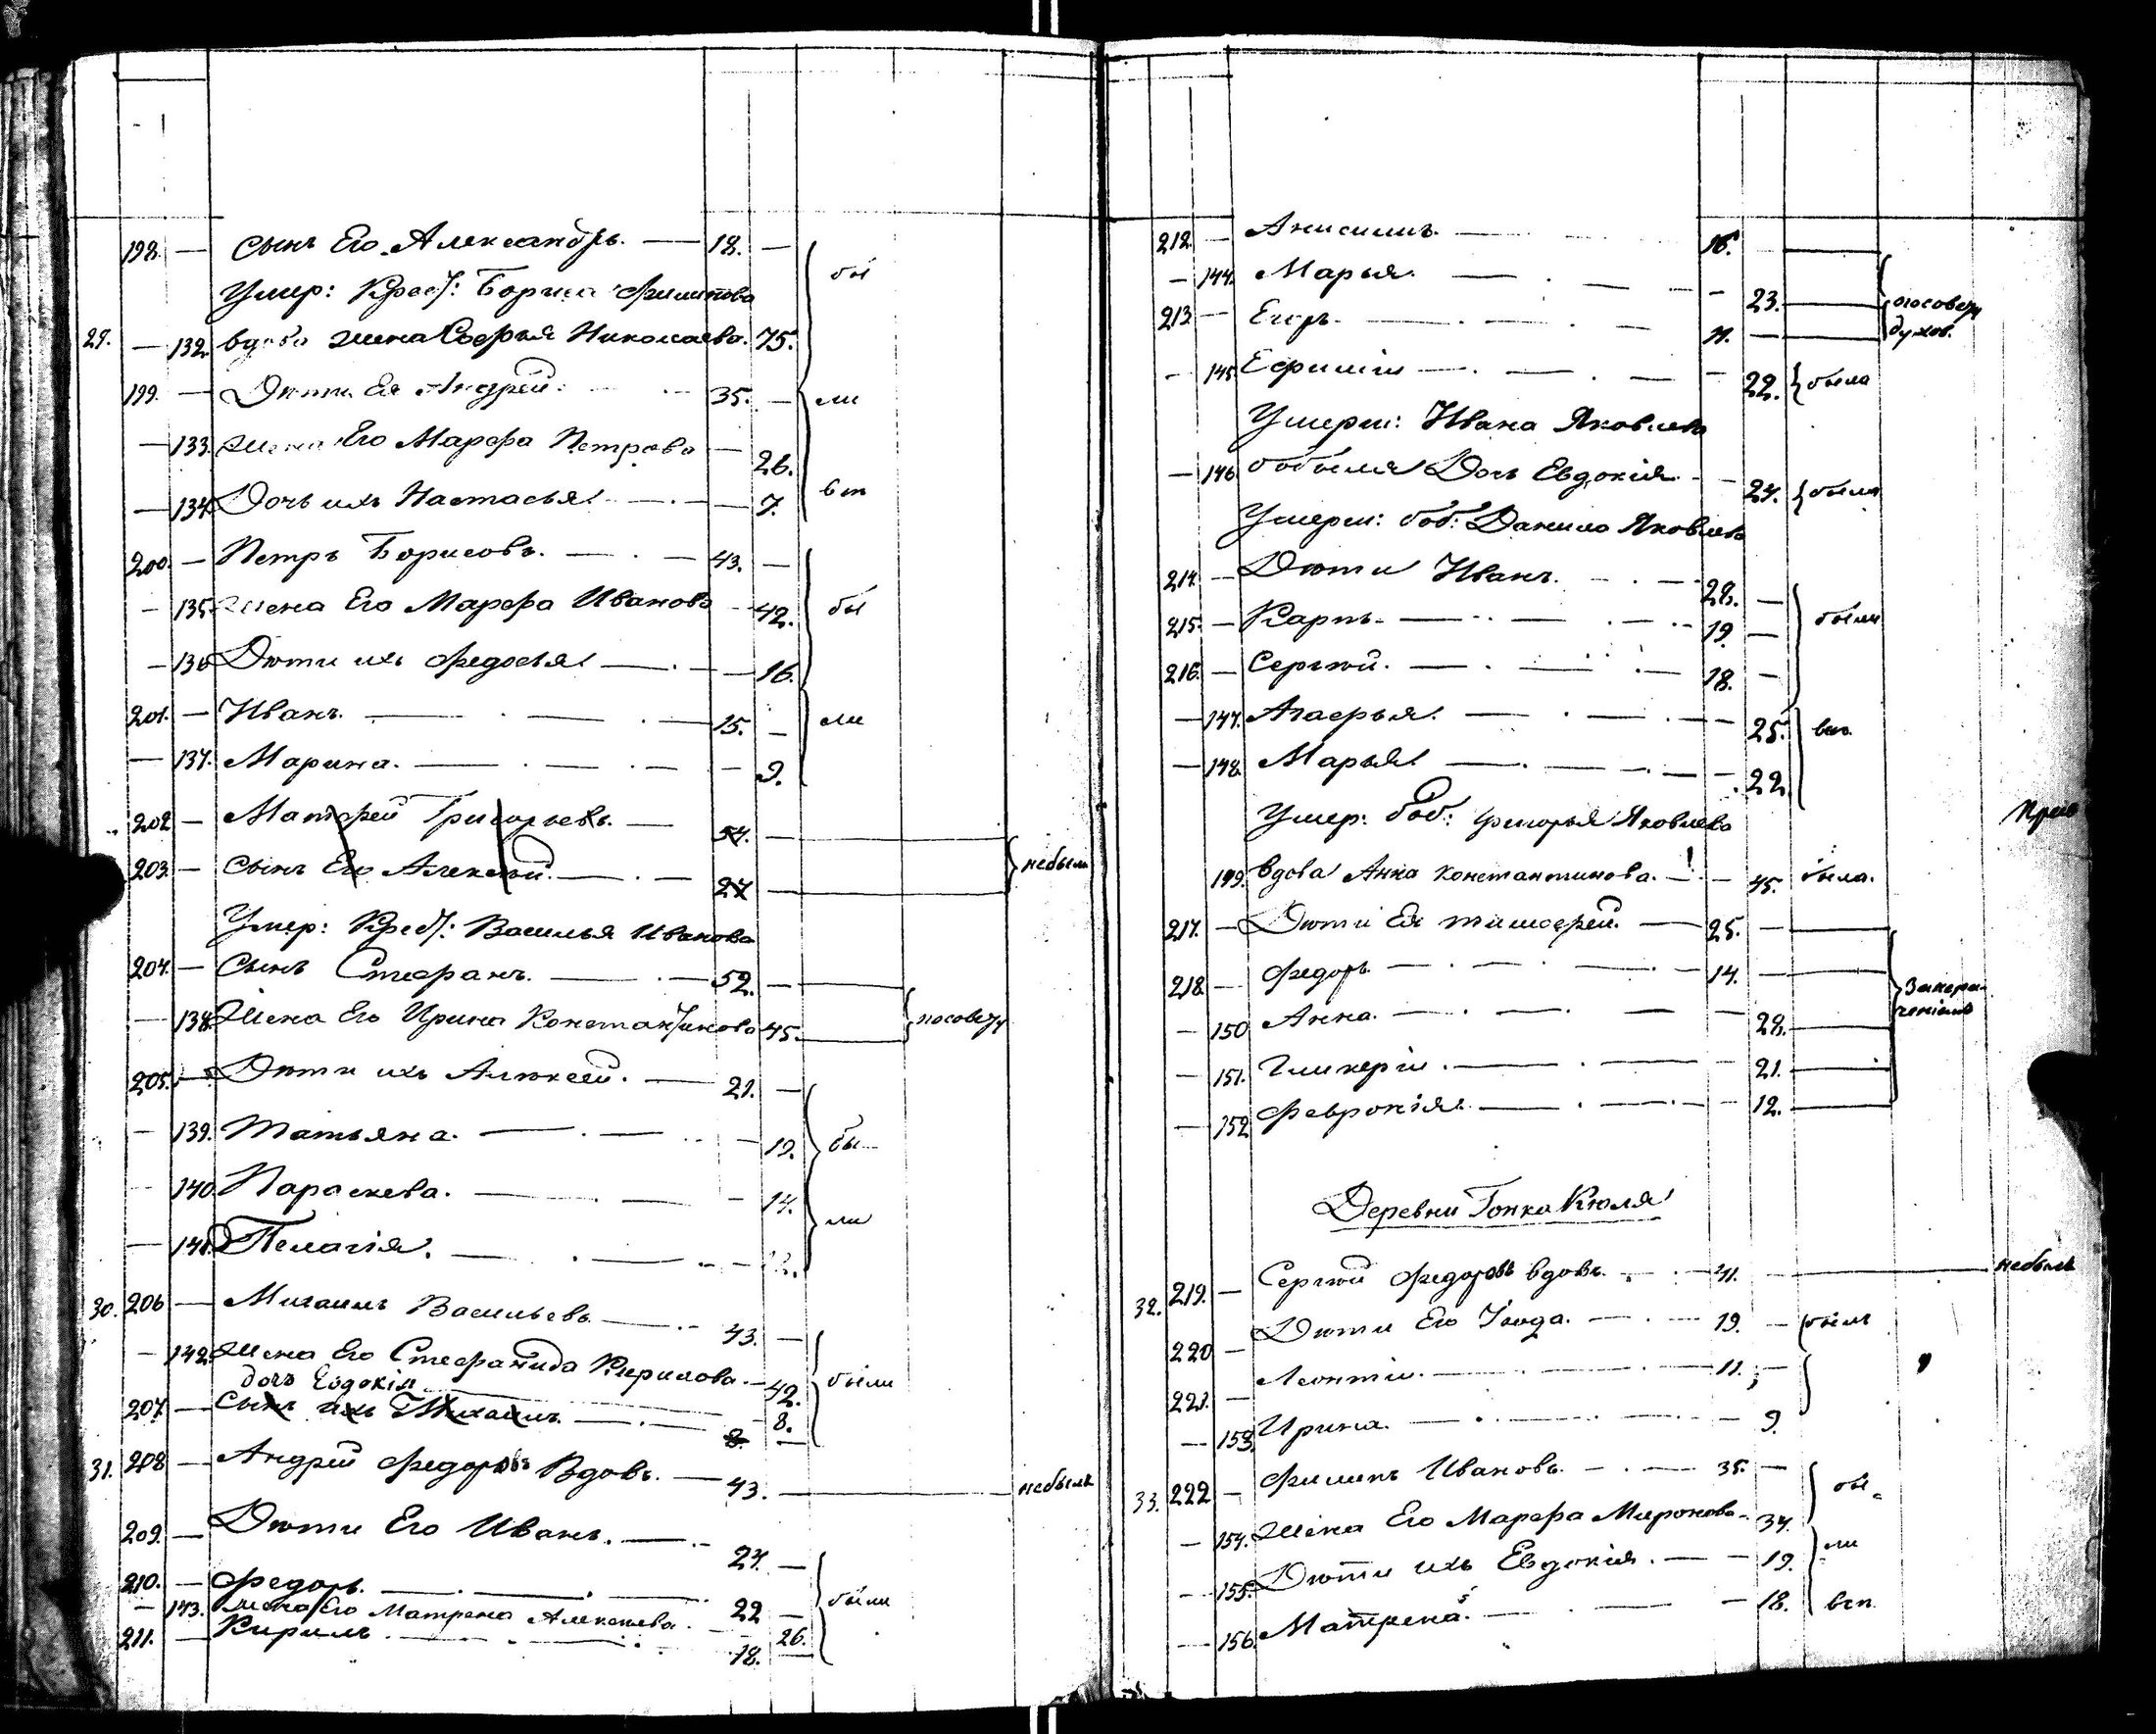 198. — Сынъ Его Александръ. — 18. — бы
Умер: Крест: Бориса Филипова
29. — 132. вдова жена Софья Николаева. 75.
199. — Дѣти Ея Андрей. 35. — ли
— 133. жена Его Марфа Петрова — 26.
— 134. Дочь ихъ Настасья — 7. вси
200. — Петръ Борисовъ. — 43. —
— 135. жена Его Марфа Иванова — 42. бы
— 136 Дѣти ихъ Федосья — 16.
201. — Иванъ. — 15. — ли
— 137. Марина. — 9.
202 — Матфей Григорьевъ. — 54. —
203. — Сынъ Его Алексѣй. — 27 — небыли
Умер: Крест: Василья Иванова
204. — Сынъ Стефанъ. — 52. —
— 138. Жена Его Ирина Константинова 45. посовету
205. — Дѣти ихъ Алексей. — 21. —
— 139. Татьяна. — 19. бы
— 140. Параскева. — 14.
— 141. Пелагія. — 12. ли
30. 206 — Михаилъ Васильевъ. — 43. —
— 142. жена Его Стефанида Кирилова. — 42. были
дочь Евдокія 8.
207. — Сынъ ихъ Михаилъ. — 8. —
31. 208 — Андрей Федоровъ Вдовъ. — 43. — небылъ
209. — Дѣти Его Иванъ. — 24. —
210. — Федоръ. — 22 — были
— 143. жена Его Матрена Алексеева. 26.
211. — Кирилъ — 18. —
212. — Анисимъ. — 16. —
— 144. Марья. — 23. посовету
213. — Егоръ. — 11. — духов.
— 145. Ефимія — 22. была
Умерш: Ивана Яковлева
— 146. бобыля Дочь Евдокія — 24. была
Умерш: боб: Данила Яковлева
214. — Дѣти Иванъ. — 28. —
215. — Карпъ. — 19 — были
216. — Сергѣй. — 18. —
— 147. Агафья. — 25. вси.
— 148. Марья — 22.
Умер: боб: Григорья Яковлева
149. вдова Анна Константинова. — 45. была.
217. — Дѣти Ея Тимофей. — 25. —
218. — Федоръ — 14. —
— 150 Анна. — 28.
— 151. Гликерія. — 21.
— 152. Февронія. — 12.
Деревни Гонка Кюля
32. 219. — Сергѣй Федоровъ вдовъ. — 41. — небылъ
220 — Дѣти Его Іюда. — 19. — были
221. — Леонтій. — 11. —
— 153. Ирина. — 9.
33. 222 — Филипъ Ивановъ. — 35. — бы-
— 154. Жена Его Марфа Миронова. — 34. ли
— 155. Дѣти ихъ Евдокія. — 19.
— 156. Матрена. — 18. всп.